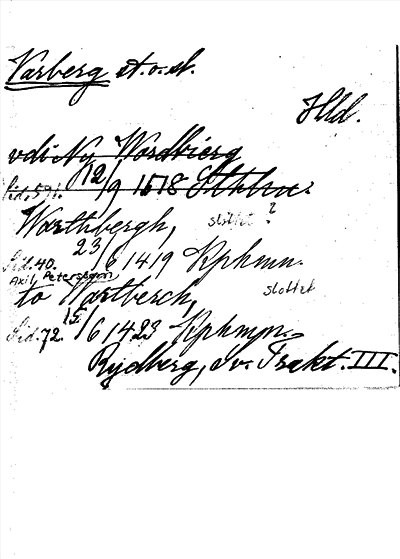 Varberg st. o. sl.
Hld.
vdi Ny Wordbierg
Sid. 591. 12/9 1518 Sthlm.
Warthbergh, slottet?
Sid. 40. 23/6 1419 Kphmn.
Axil Peterssøn
to Wartberch, slottet
Sid. 72. 15/6 1423 Kphmn.
Rydberg, Sv. Trakt. III.